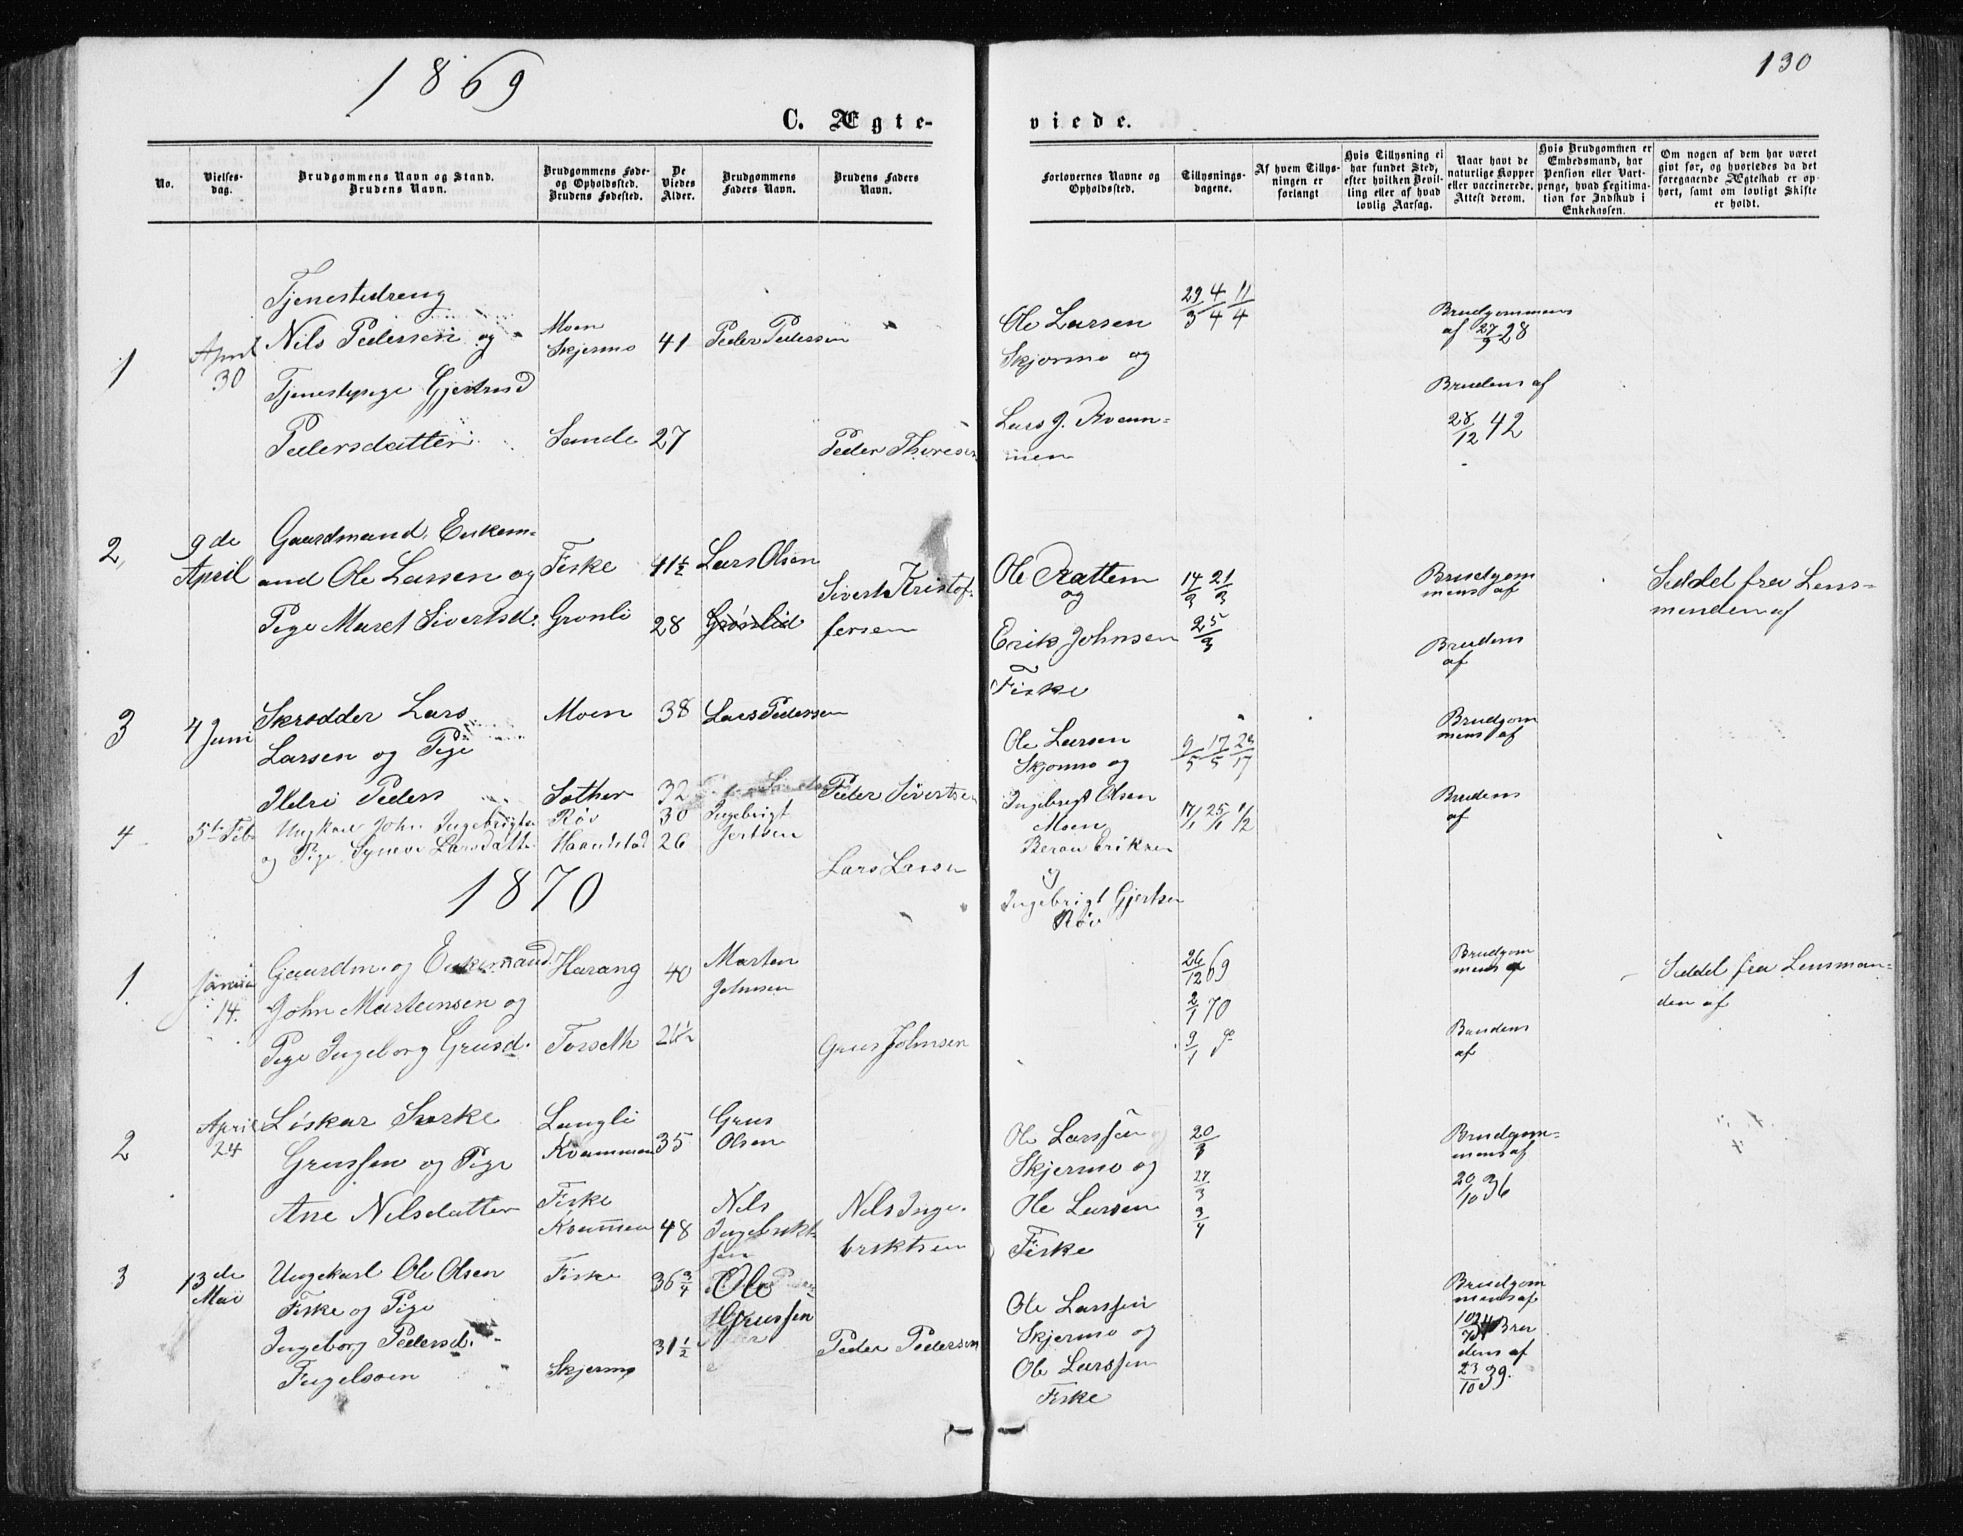 1869
130
C. Ægte-
viede.
No.
Vielses-
dag.
Brudgommens Navn og Stand.
Brudens Navn.
Brudgommens Føde-
og Opholdssted.
Brudens Fødested.
De
Viedes
Alder.
Brudgommens
Faders Navn.
Brudens Faders
Navn.
Forlovernes Navne og
Opholdssted.
Tillysnings-
dagene.
Af hvem Tillys-
ningen er
forlangt
Hvis Tillysning ei
har fundet Sted,
efter hvilken Bevil-
ling eller af hvad
lovlig Aarsag.
Naar havt de
naturlige Kopper
eller vaccinerede.
Attest derom.
Hvis Brudgommen er
Embedsmand, har
Pension eller Vart-
penge, hvad Legitima-
tion for Indskud i
Enkekassen.
Om nogen af dem har været
gift før, og hvorledes da det
foregaaende Ægteskab er op-
hørt, samt om lovligt Skifte
er holdt.
1
April
30
Tjenestedreng
Nils Pedersen og
Tjenestepige Gjertrud
Pedersdatter
Moen
Skjermo
Sande
41
27
Peder Pedersen
Peder Thoresen
Ole Larsen
Skjormo og
Lars J. Kvam-
men
29/3 4/4 11/4
Brudgommens
af 27/9 28
Brudens af
28/12 42
2,
9de
April
Gaardmand, Enkem-
and Ole Larsen og
Pige Maret Sivertsd.
Fiske
Gronli
41½
28
Lars Olsen
Grönlid
Sivert Kristof-
fersen
Ole Rattem
og
Erik Johnsen
Fiske
14/3 21/3
25/3
Brudgom
mens af
Brudens
af
Seddel fra Lens-
manden af
3
4 Juni
Skrædder Lars
Larsen og Pige
Ildri Peders
Moen
Sæther
38
32
Lars Pedersen
Peder Sivertsen
Ole Larsen
Skjormo og
Ingebrigt Olsen
Moen
9/5 17/5
Brudgom
mens af
Brudens
af
4
5te Feb
Ungkarl John Ingebrigtsen
og Pige Synnve Larsdatter
Röv
Haandstad
30
26
Ingebrigt
Jertsen
Lars Larsen
Beron Eriksen
og
Ingebrigt Gjertsen
Röv
17/1 25/1 1/2
1870
1
Januar
14.
Gaardm. og Enkemand
John Martensen og
Pige Ingeborg Grusd.
Harang
Forseth
40
21½
Marten
Johnsen
Grus Johnsen
26/12 69
2/1 70
9/1
Brudgom
mens af
Brudens
af
Seddel fra Lensman-
den af
2
April
24
Löskar Sverke
Grussen og Pige
Ane Nilsdatter
Langli
Kvammen
Fiske
Kvammen
35
48
Grus
Olsen
Nils
Ingebrikt-
sen
Nils Inge-
briktsen
Ole Larssen
Skjermo og
Ole Larsen
Fiske
20/3
27/3
3/4
Brudgom-
mens af
20/10 36
3
13de
Mai
Ungekarl Ole Olsen
Fiske og Pige
Ingeborg Pedersd.
Fugelsoen
Fiske
Skjermo
36¾
31½
Ole
Grussen
Peder Pedersen
Ole Larssen
Skjermo og
Ole Larssen
Fiske
Brudgom
mens af
Bru
dens af
23/10 39.